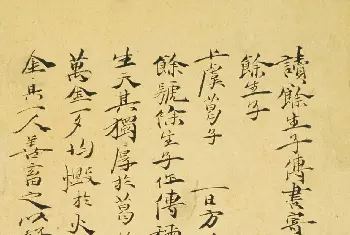 讀餘生子傳書寄
餘生子
上虞葛子　一日方
餘號餘生子作傳
生天其獨厚於葛
萬金一夕均燬於火
金與一人善畜之以